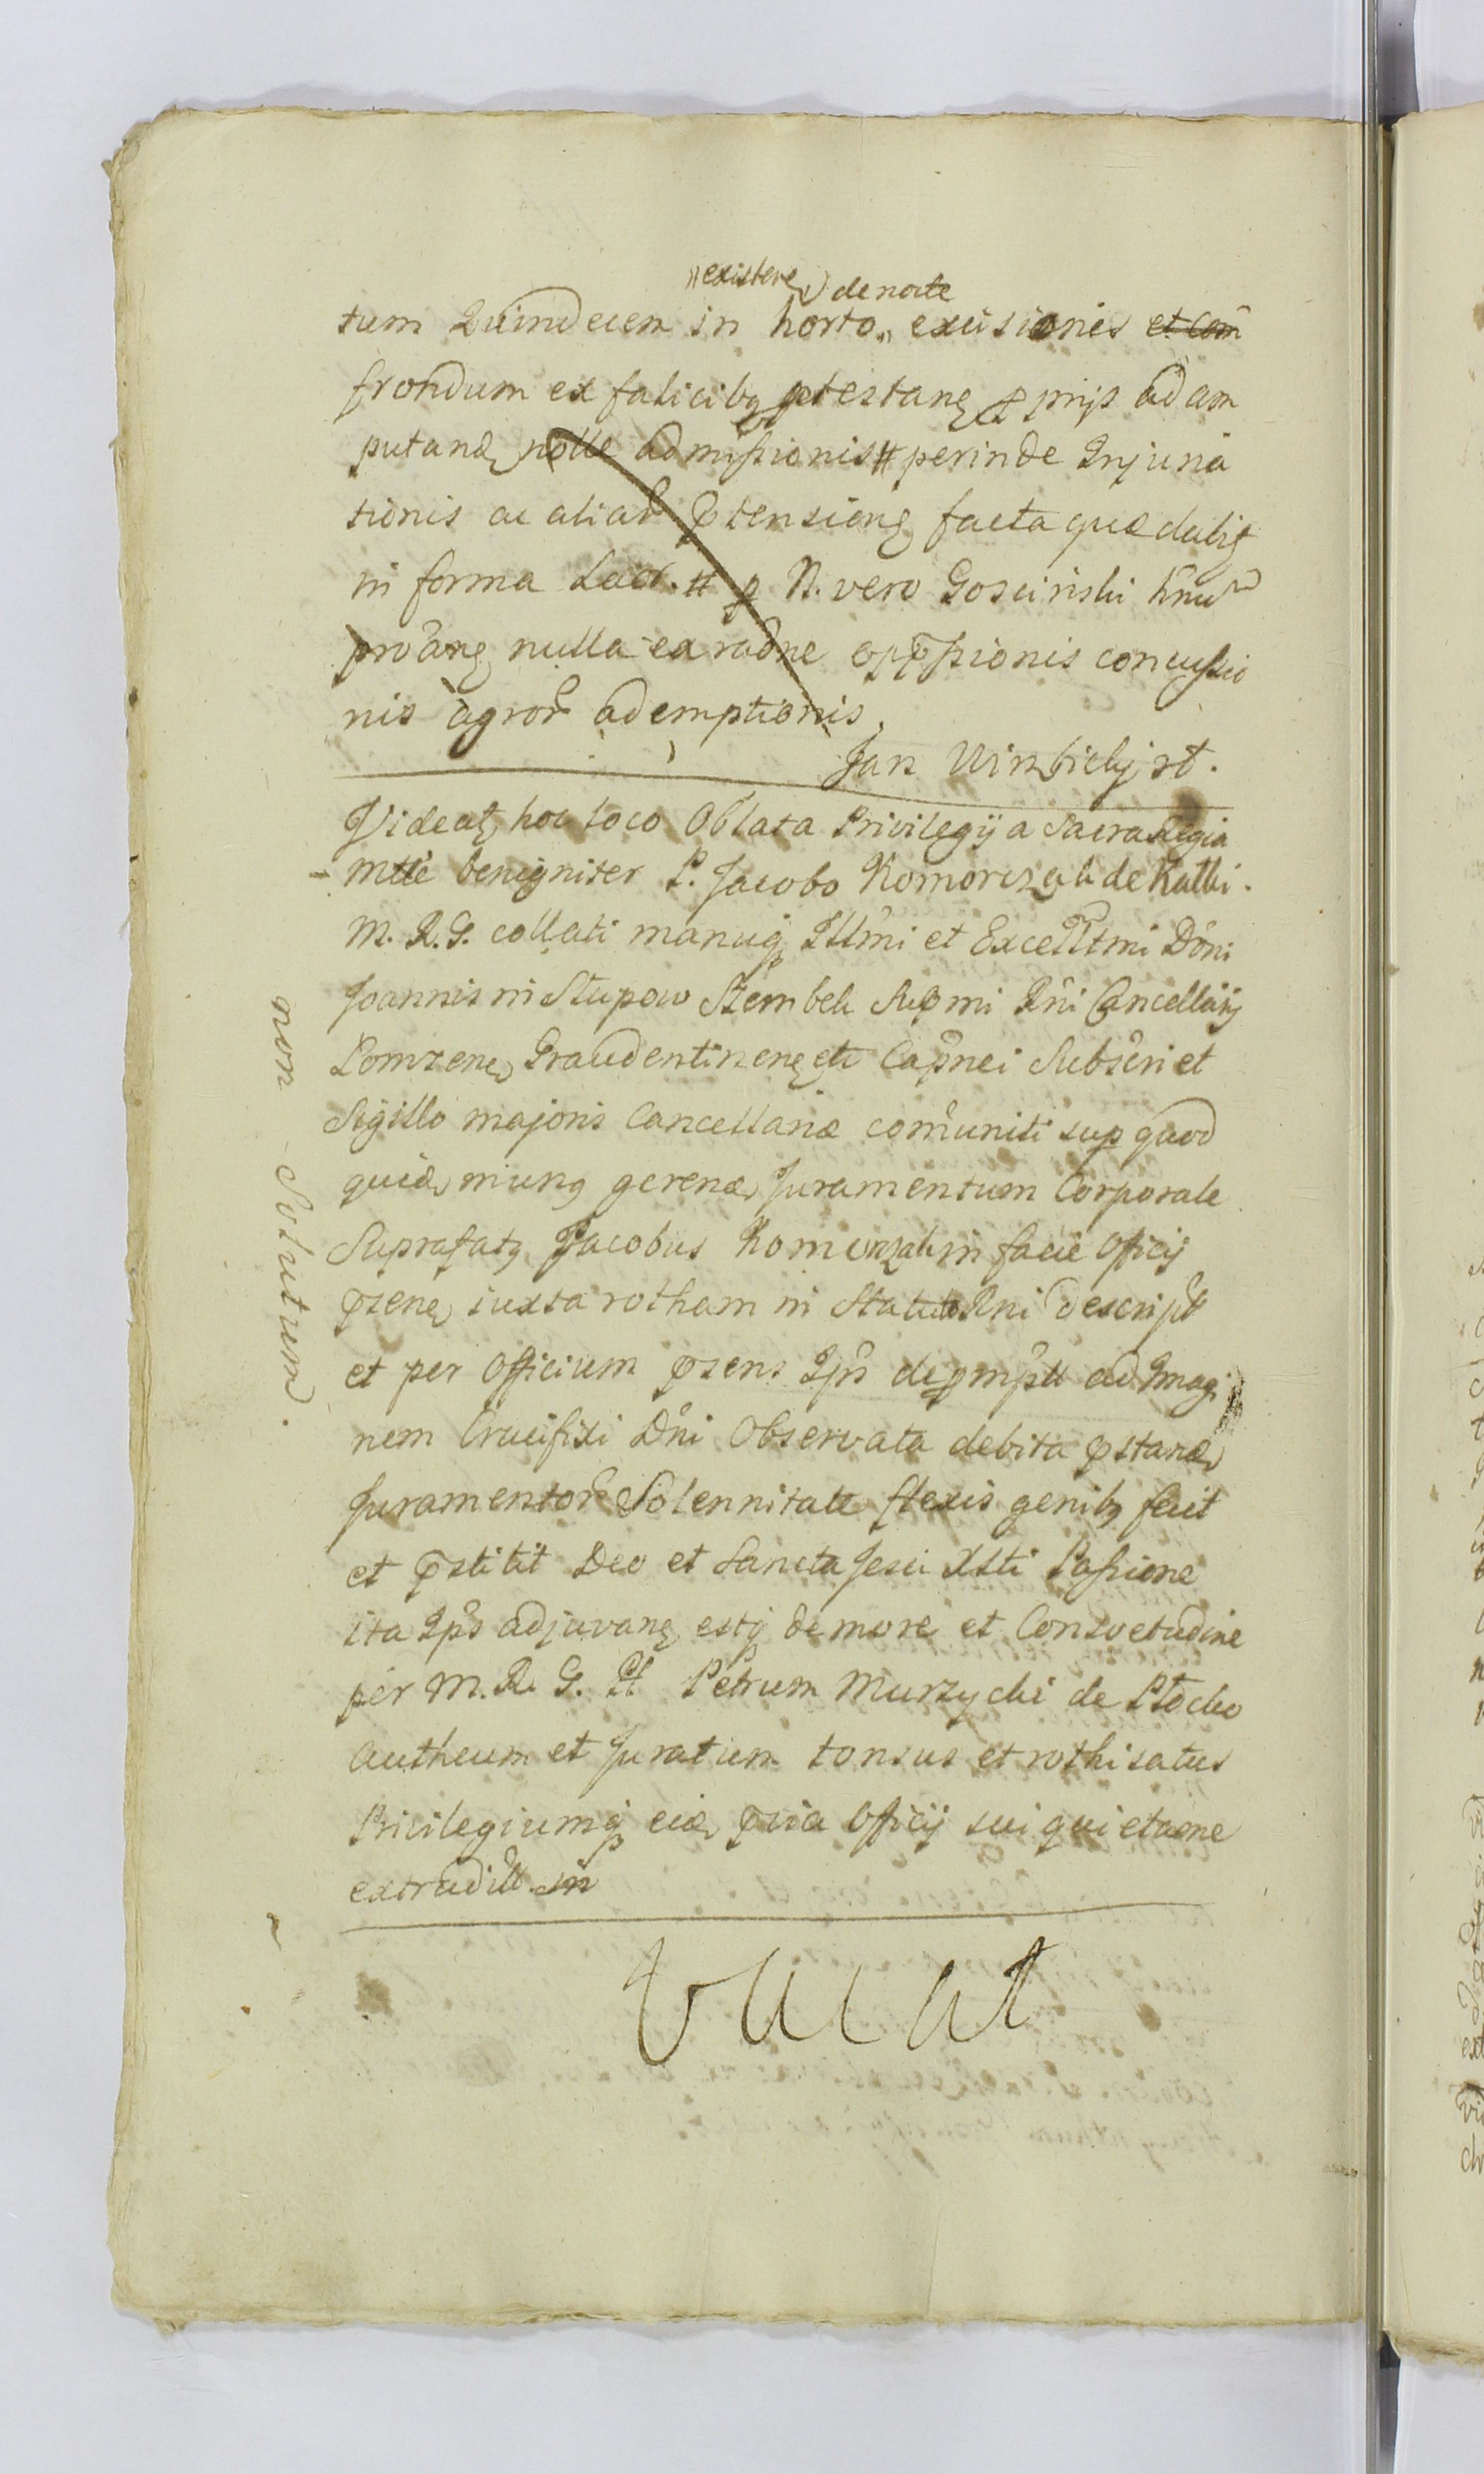 existen[ de nocte
tum Quindecem in horto„ excisionis et com̃
frondum ex salicibq ptestanę p prijs ad am
putand nolle admissionis # perinde Injuria
tionis ac aliar ptensionę facta quædabit
in forma Laór. # p N. vero Gosciński
nulla ea radne oppssionis concussio
nis agror ademptionis.
Jan Winbickj st.
Videat, hoc loco Oblata Privilegij a Sacra Regia
Mtte benigniter P. Jacobo Komorczak de Kalki.
M. R. G. collati manuq Illmi et Excelltmi Dñi
Joannis in Słupow Szembek Supmi Rñi Cancellarij
Lomzenę, Graudentinenę etc Capnei Subscri et
Sigillo majoris Cancellariæ com̃uniti sup quod
quidę munq gerend, Juramentum Corporale
Suprafatq Jacobus Komorczak in facie Officij
psenę, iuxta rotham in Statuto Rni descript
et per Officium psens Ips deprompt ad Imagi
nem Crucifixi Dñi Observata debita pstand,
Juramentor Solennitate flexis genibq fecit
et pstitit Deo et Sancta Jesu Xsti Passione
ita Ips adjuvanę, estq de more et Consvetudine
per M. R. G. Pt Petrum Murzycki de Płocko
Autheum et Juratum tonsus et rothisatus
Privilegiumq eid, pvia Officij sui quietaone
extradit. in
Vacat
non Solutum.